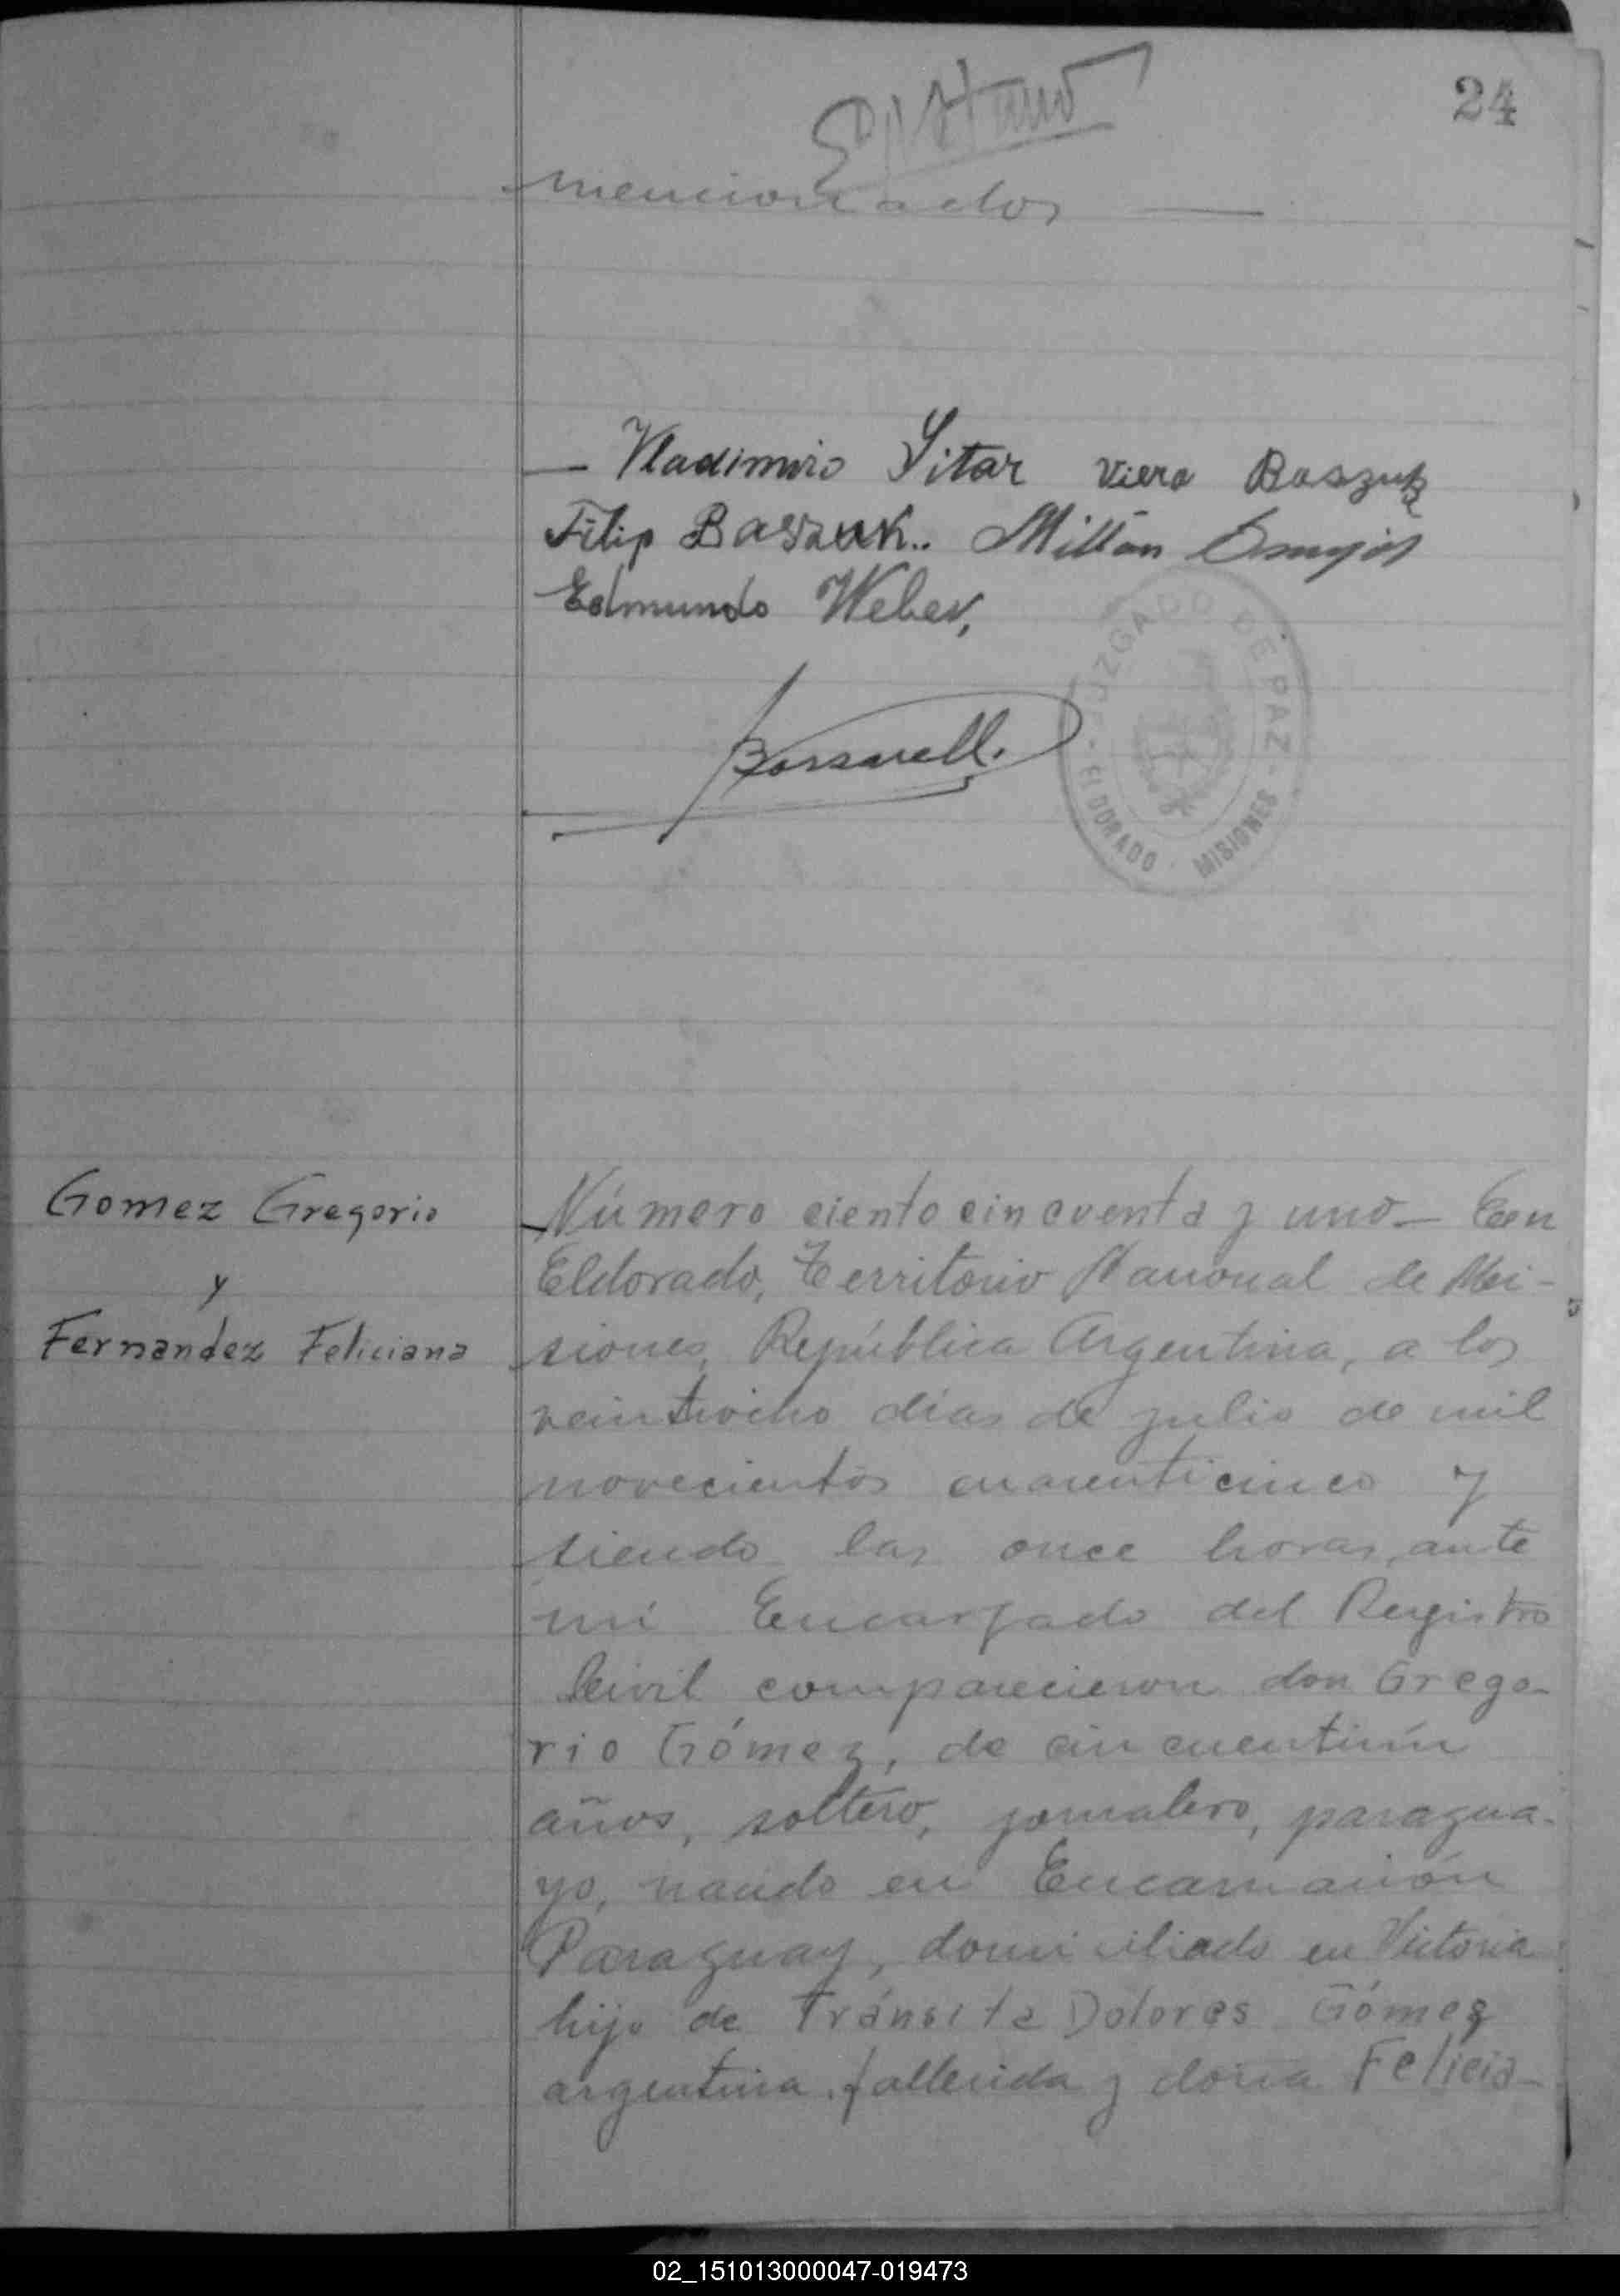 24
mencionados
Vladimiro Sitar Viera Baszuk
Filip Baszuk.. Millán
Edmundo Weber,
JUZGADO DE PAZ
ELDORADO · MISIONES
Gomez Gregorio
y
Fernandez Feliciana
Número ciento cincuenta y uno — En
Eldorado, Territorio Nacional de Mi-
siones, República Argentina, a los
veintiocho días de julio de mil
novecientos cuarenticinco y
siendo las once horas, ante
mi Encargado del Registro
Civil comparecieron don Grego-
rio Gómez, de cincuentiún
años, soltero, jornalero, paragua-
yo, nacido en Encarnación
Paraguay, domiciliado en Victoria
hijo de Tránsita Dolores Gómez
argentina, fallecida y doña Felicia-
02_151013000047-019473